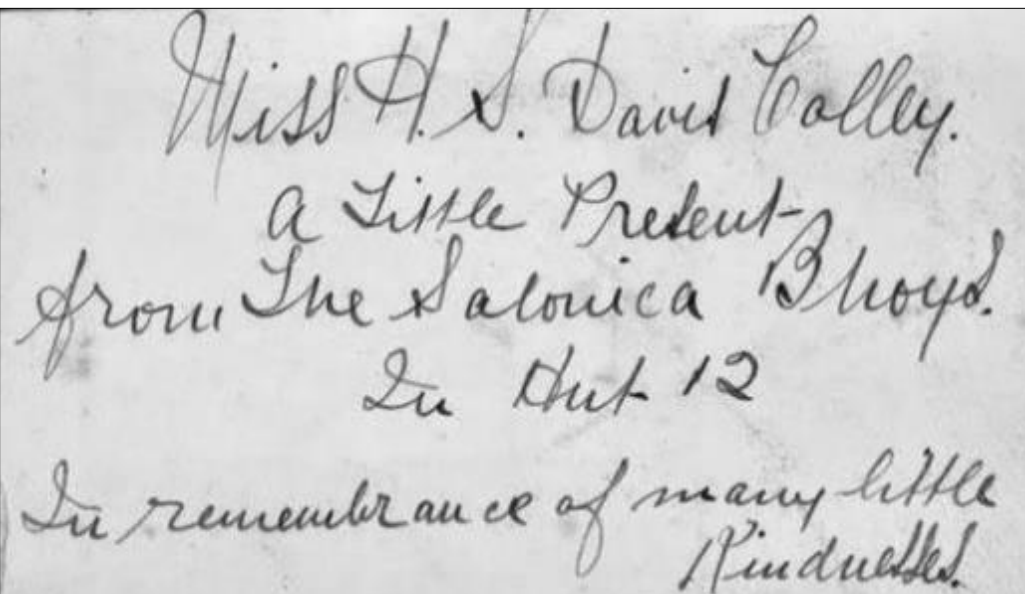 Miss H. S. Davis Colley.
A Little Present
from The Salonica Bhoys.
In Hut 12
In remembrance of many little
Kindnesses.